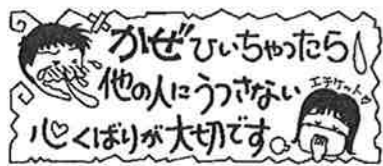 かぜひいちゃったら
他の人にうつさない
エチケット
心くばりが大切です。